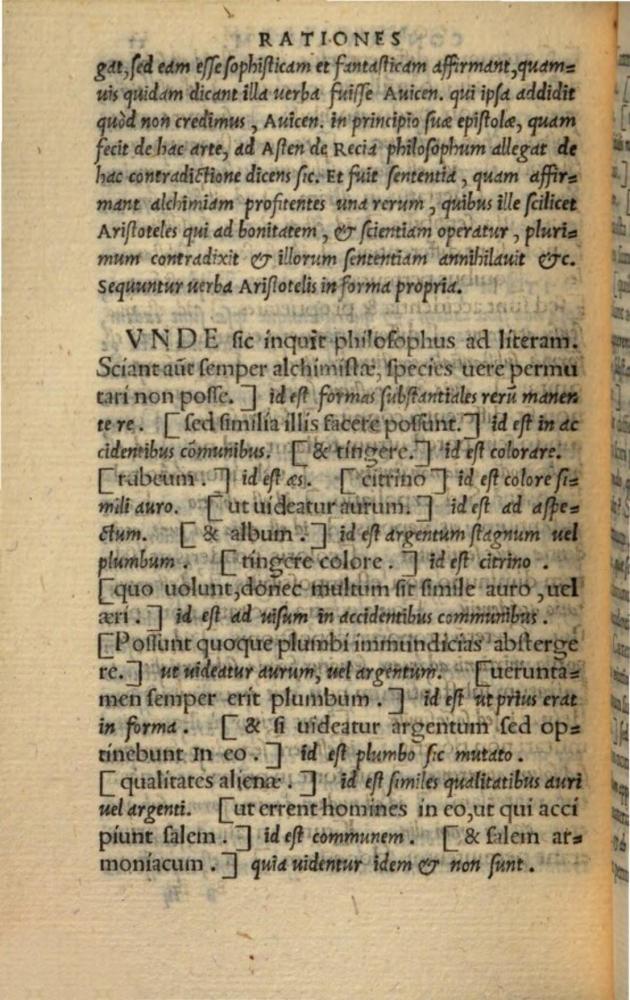 RATIONES
gat, sed eam esse sophisticam et fantasticam affirmant, quam=
uis quidam dicant illa uerba fuisse Auicen. qui ipsa addidit
quòd non credimus, Auicen. in principio suæ epistolæ, quam
fecit de hac arte, ad Asten de Recia philosophum allegat de
hac contradictione dicens sic. Et fuit sententia, quam affir=
mant alchimiam profitentes una rerum, quibus ille scilicet
Aristoteles qui ad bonitatem, & scientiam operatur, pluri=
mum contradixit & illorum sententiam annihilauit &c.
Sequuntur uerba Aristotelis in forma propria.
VNDE sic inquit philosophus ad literam.
Sciant aūt semper alchimistæ, species uere permu
tari non posse. ] id est formas substantiales rerū manen
te re. [ sed similia illis facere possunt. ] id est in ac
cidentibus cōmunibus. [ & tingere. ] id est colorare.
[ rubeum. ] id est æs. [ citrino ] id est colore si=
mili auro. [ ut uideatur aurum. ] id est ad aspe=
ctum. [ & album. ] id est argentum stagnum uel
plumbum. [ tingere colore. ] id est citrino.
[ quo uolunt, donec multum sit simile auro, uel
æri. ] id est ad uisum in accidentibus communibus.
[ Possunt quoque plumbi immundicias absterge
re. ] ut uideatur aurum, uel argentum. [ uerunta=
men semper erit plumbum. ] id est ut prius erat
in forma. [ & si uideatur argentum sed op=
tinebunt in eo. ] id est plumbo sic mutato.
[ qualitates alienæ. ] id est similes qualitatibus auri
uel argenti. [ ut errent homines in eo, ut qui acci
piunt salem. ] id est communem. [ & salem ar=
moniacum. ] quia uidentur idem & non sunt.